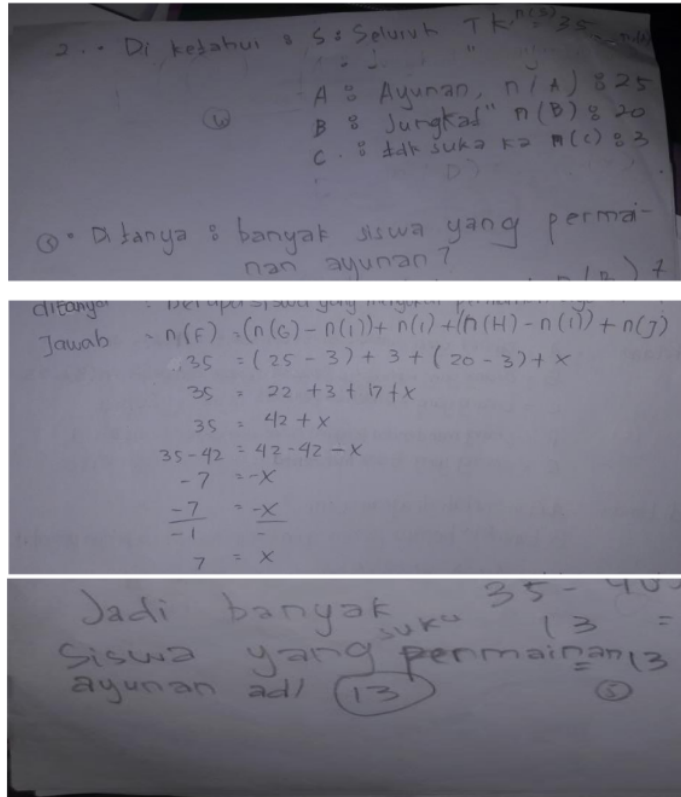 2. • Di ketahui : S : Seluruh TK n(S) = 35
A : Ayunan, n(A) : 25
B : Jungkat" n(B) : 20
C. : tdk suka ka n(C) : 3
• Ditanya : banyak siswa yang permai-
nan ayunan?
ditanya :
Jawab = n(F) = (n(G) - n(i)) + n(i) + (n(H) - n(i)) + n(j)
35 = (25 - 3) + 3 + (20 - 3) + x
35 = 22 + 3 + 17 + x
35 = 42 + x
35 - 42 = 42 - 42 - x
-7 = -x
-7 = -x
-1 -
7 = x
35 -
Jadi banyak 13 =
suka
siswa yang permainan 13
ayunan adl 13 (5)